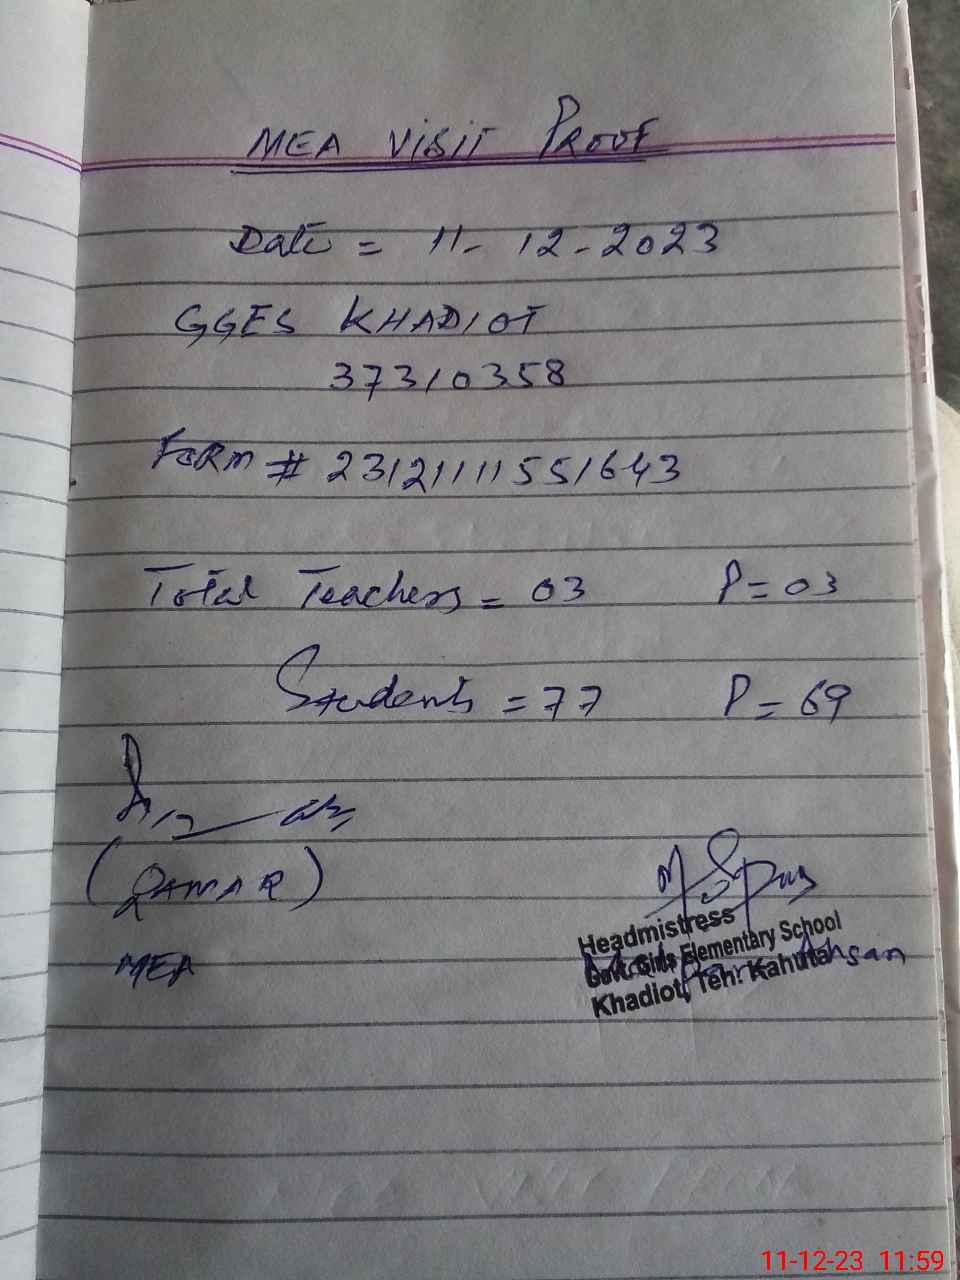 MEA VISIT PROOF
Date = 11-12-2023
GGES KHADIOT
37310358
FORM # 23121111551643
Total Teachers = 03 P = 03
Students = 77 P = 69
(QAMAR)
MEA
Headmistress
Govt. Girls Elementary School
Ahsan
Khadiot, Teh: Kahuta
11-12-23 11:59